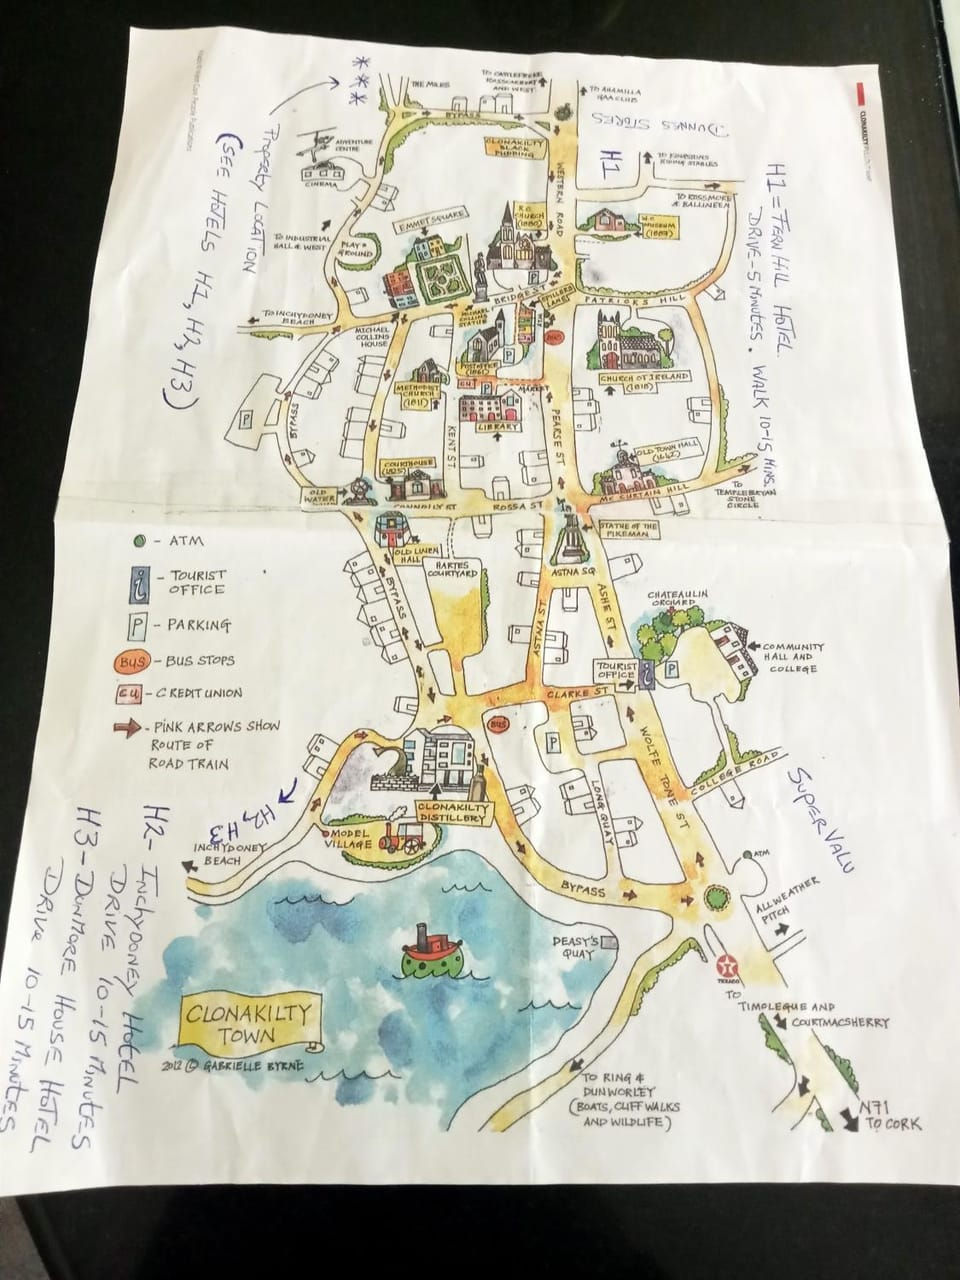 CLONAKILTY
THE MILES
TO CASTLEFREKE
ROSSCARBERY
AND WEST
TO AHAMILLA
GAA CLUB
BYPASS
***
DUNNES STORES
H1
Property Location
(SEE HOTELS H1, H2, H3)
H1 = FERNHILL HOTEL.
DRIVE - 5 MINUTES. WALK 10-15 MINS.
CLONAKILTY
BLACK
PUDDING
ADVENTURE
CENTRE
CINEMA
WESTERN ROAD
TO ROSSMORE
& BALLINEEN
EMMET SQUARE
R.C.
CHURCH
(1880)
W.C.
MUSEUM
(1887)
TO INDUSTRIAL
HALL & WEST
PLAY
GROUND
P
BRIDGE ST
SPILLERS
LANE
PATRICKS HILL
TO INCHYDONEY
BEACH
MICHAEL
COLLINS
STATUE
MICHAEL
COLLINS
HOUSE
BUS
POST OFFICE
(1861)
P
CHURCH OF IRELAND
(1818)
METHODIST
CHURCH
(1811)
CU
P
MARKET
LIBRARY
P
BYPASS
KENT ST.
PEARSE ST
OLD TOWN HALL
(1692)
COURTHOUSE
(1825)
OLD
WATER
CONNOLLY ST.
ROSSA ST.
MC CURTAIN HILL
TO
TEMPLEBRYAN
STONE
CIRCLE
STATUE OF THE
PIKEMAN
OLD LINEN
HALL
HARTES
COURTYARD
ASTNA SQ
ATM
TOURIST
OFFICE
P - PARKING
BUS - BUS STOPS
CU - CREDIT UNION
PINK ARROWS SHOW
ROUTE OF
ROAD TRAIN
BYPASS
ASTNA ST
ASHE ST
CHATEAULIN
ORCHARD
COMMUNITY
HALL AND
COLLEGE
TOURIST
OFFICE
i
P
CLARKE ST
BUS
P
WOLFE TONE ST
COLLEGE ROAD
LONG QUAY
CLONAKILTY
DISTILLERY
MODEL
VILLAGE
H2, H3
INCHYDONEY
BEACH
SUPERVALU
ATM
ALLWEATHER
PITCH
BYPASS
DEASY'S
QUAY
TEXACO
TO
TIMOLEGUE AND
COURTMACSHERRY
CLONAKILTY
TOWN
2012 © GABRIELLE BYRNE
TO RING &
DUNWORLEY
(BOATS, CLIFF WALKS
AND WILDLIFE)
N71
TO CORK
H2 - INCHYDONEY HOTEL
DRIVE 10-15 MINUTES
H3 - DUNMORE HOUSE HOTEL
DRIVE 10-15 MINUTES